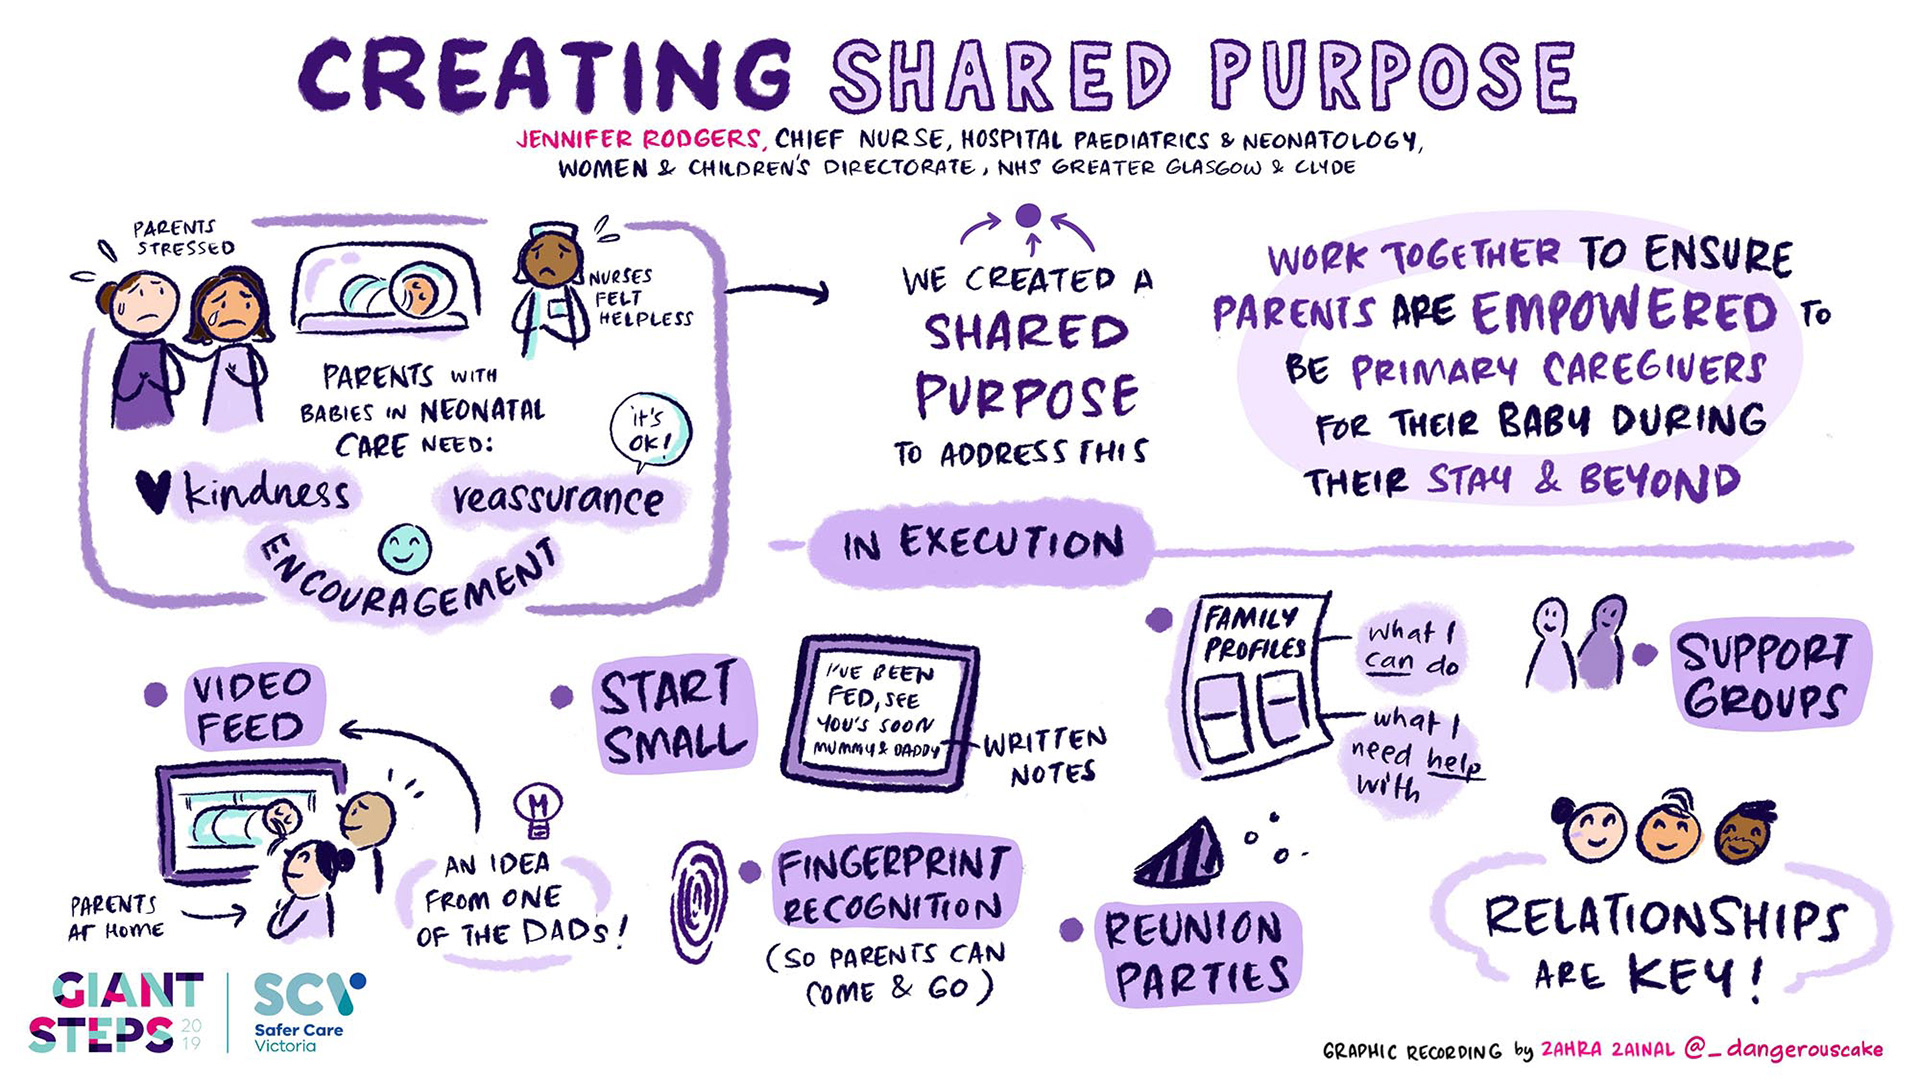 CREATING SHARED PURPOSE
JENNIFER RODGERS, CHIEF NURSE, HOSPITAL PAEDIATRICS & NEONATOLOGY,
WOMEN & CHILDREN'S DIRECTORATE, NHS GREATER GLASGOW & CLYDE
PARENTS
STRESSED
NURSES
FELT
HELPLESS
PARENTS WITH
BABIES IN NEONATAL
CARE NEED:
it's
OK!
kindness
reassurance
ENCOURAGEMENT
WE CREATED A
SHARED
PURPOSE
TO ADDRESS THIS
WORK TOGETHER TO ENSURE
PARENTS ARE EMPOWERED TO
BE PRIMARY CAREGIVERS
FOR THEIR BABY DURING
THEIR STAY & BEYOND
IN EXECUTION
VIDEO
FEED
PARENTS
AT HOME
AN IDEA
FROM ONE
OF THE DADS!
START
SMALL
I'VE BEEN
FED, SEE
YOU'S SOON
MUMMY & DADDY
WRITTEN
NOTES
FINGERPRINT
RECOGNITION
(SO PARENTS CAN
COME & GO)
FAMILY
PROFILES
what I
can do
what I
need help
with
REUNION
PARTIES
SUPPORT
GROUPS
RELATIONSHIPS
ARE KEY!
GIANT
STEPS
20
19
SCV
Safer Care
Victoria
GRAPHIC RECORDING by ZAHRA ZAINAL @_dangerouscake